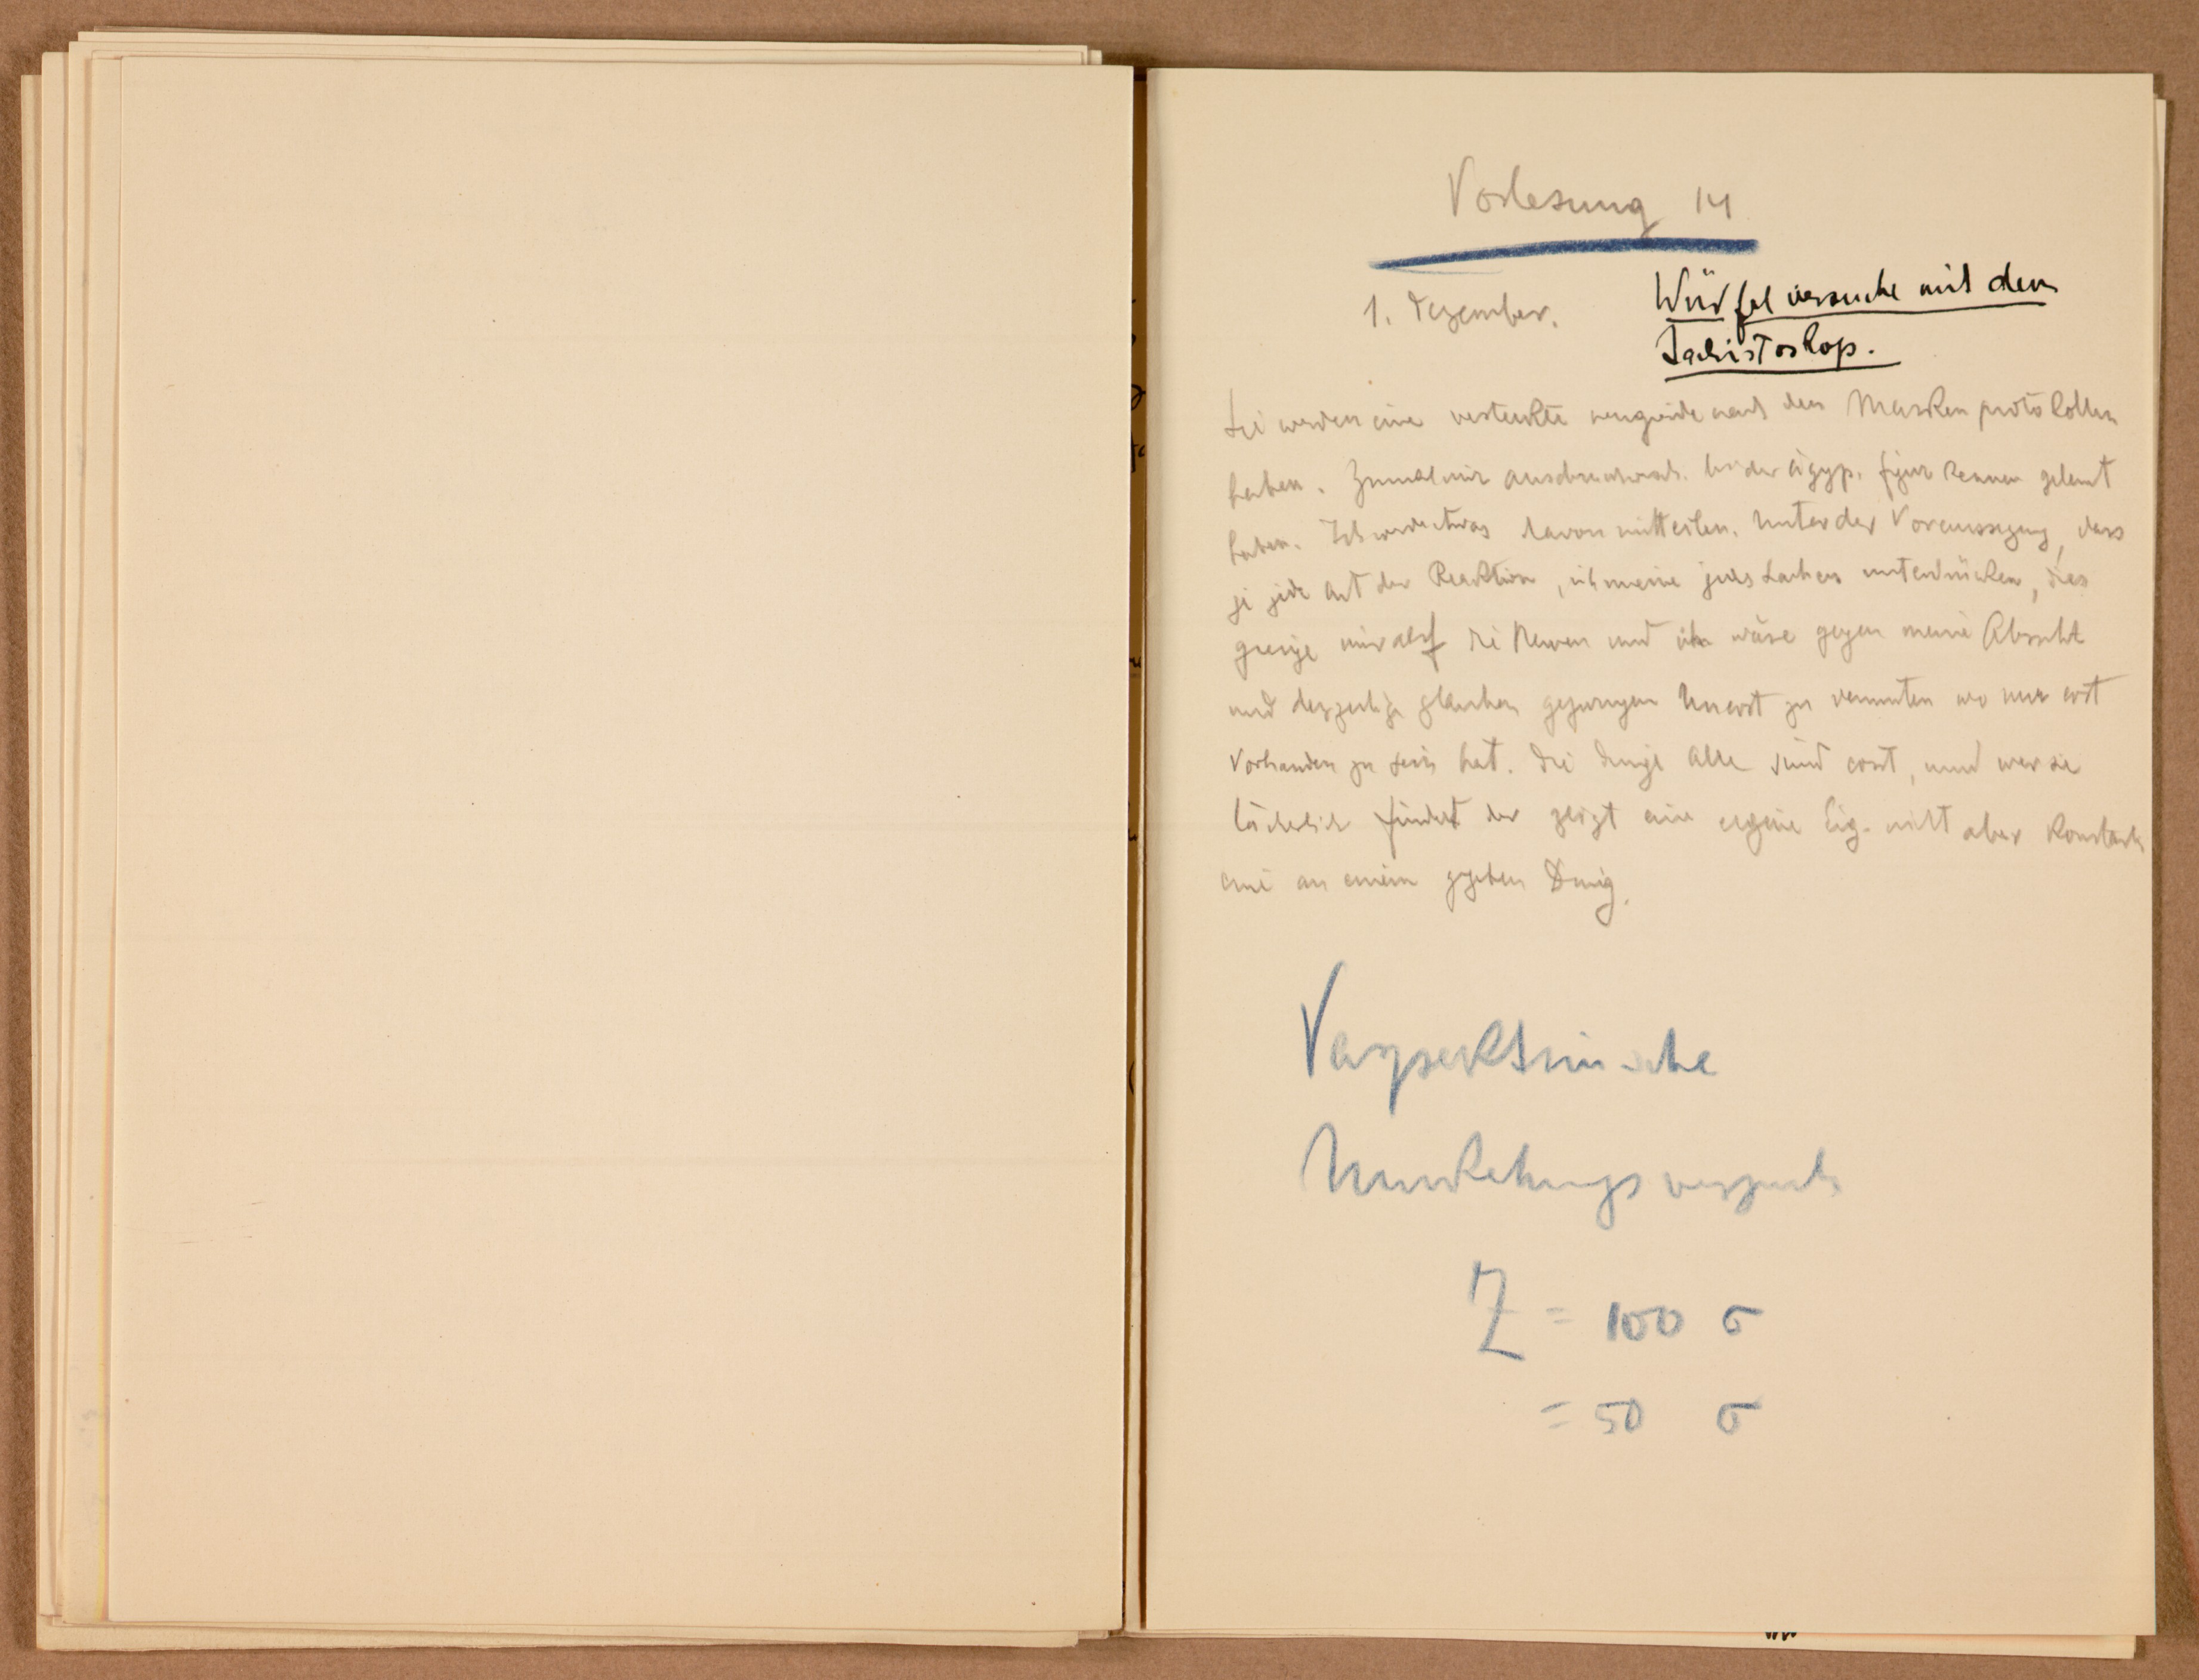 Vorlesung 14
1. Dezember.
Würfelversuche mit dem
Tachistoskop.
Sie werden eine versteckte neugierde nach den Maskenprotokollen
haben. Zumal wir ausdrucksversch. bei der ägyp. figur kennen gelernt
haben. Ich werde etwas davon mitteilen. Unter der Voraussezung, dass
si jede Art der Reaktion, ich meine jedes Lachen unterdrücken, dies
ginge mir auf die Nerven und ich wäre gegen meine Absicht
und derzeitige glauben gezwungen Unernst zu vermuten wo nur ernst
Vorhanden zu sein hat. Die dinge alle sind ernst, und wer sie
lächerlich findet der zeigt eine eigene Eig. nicht aber
eine an einem gegeben Ding.
Umkehrungsversuch
Z = 100 σ
= 50 σ